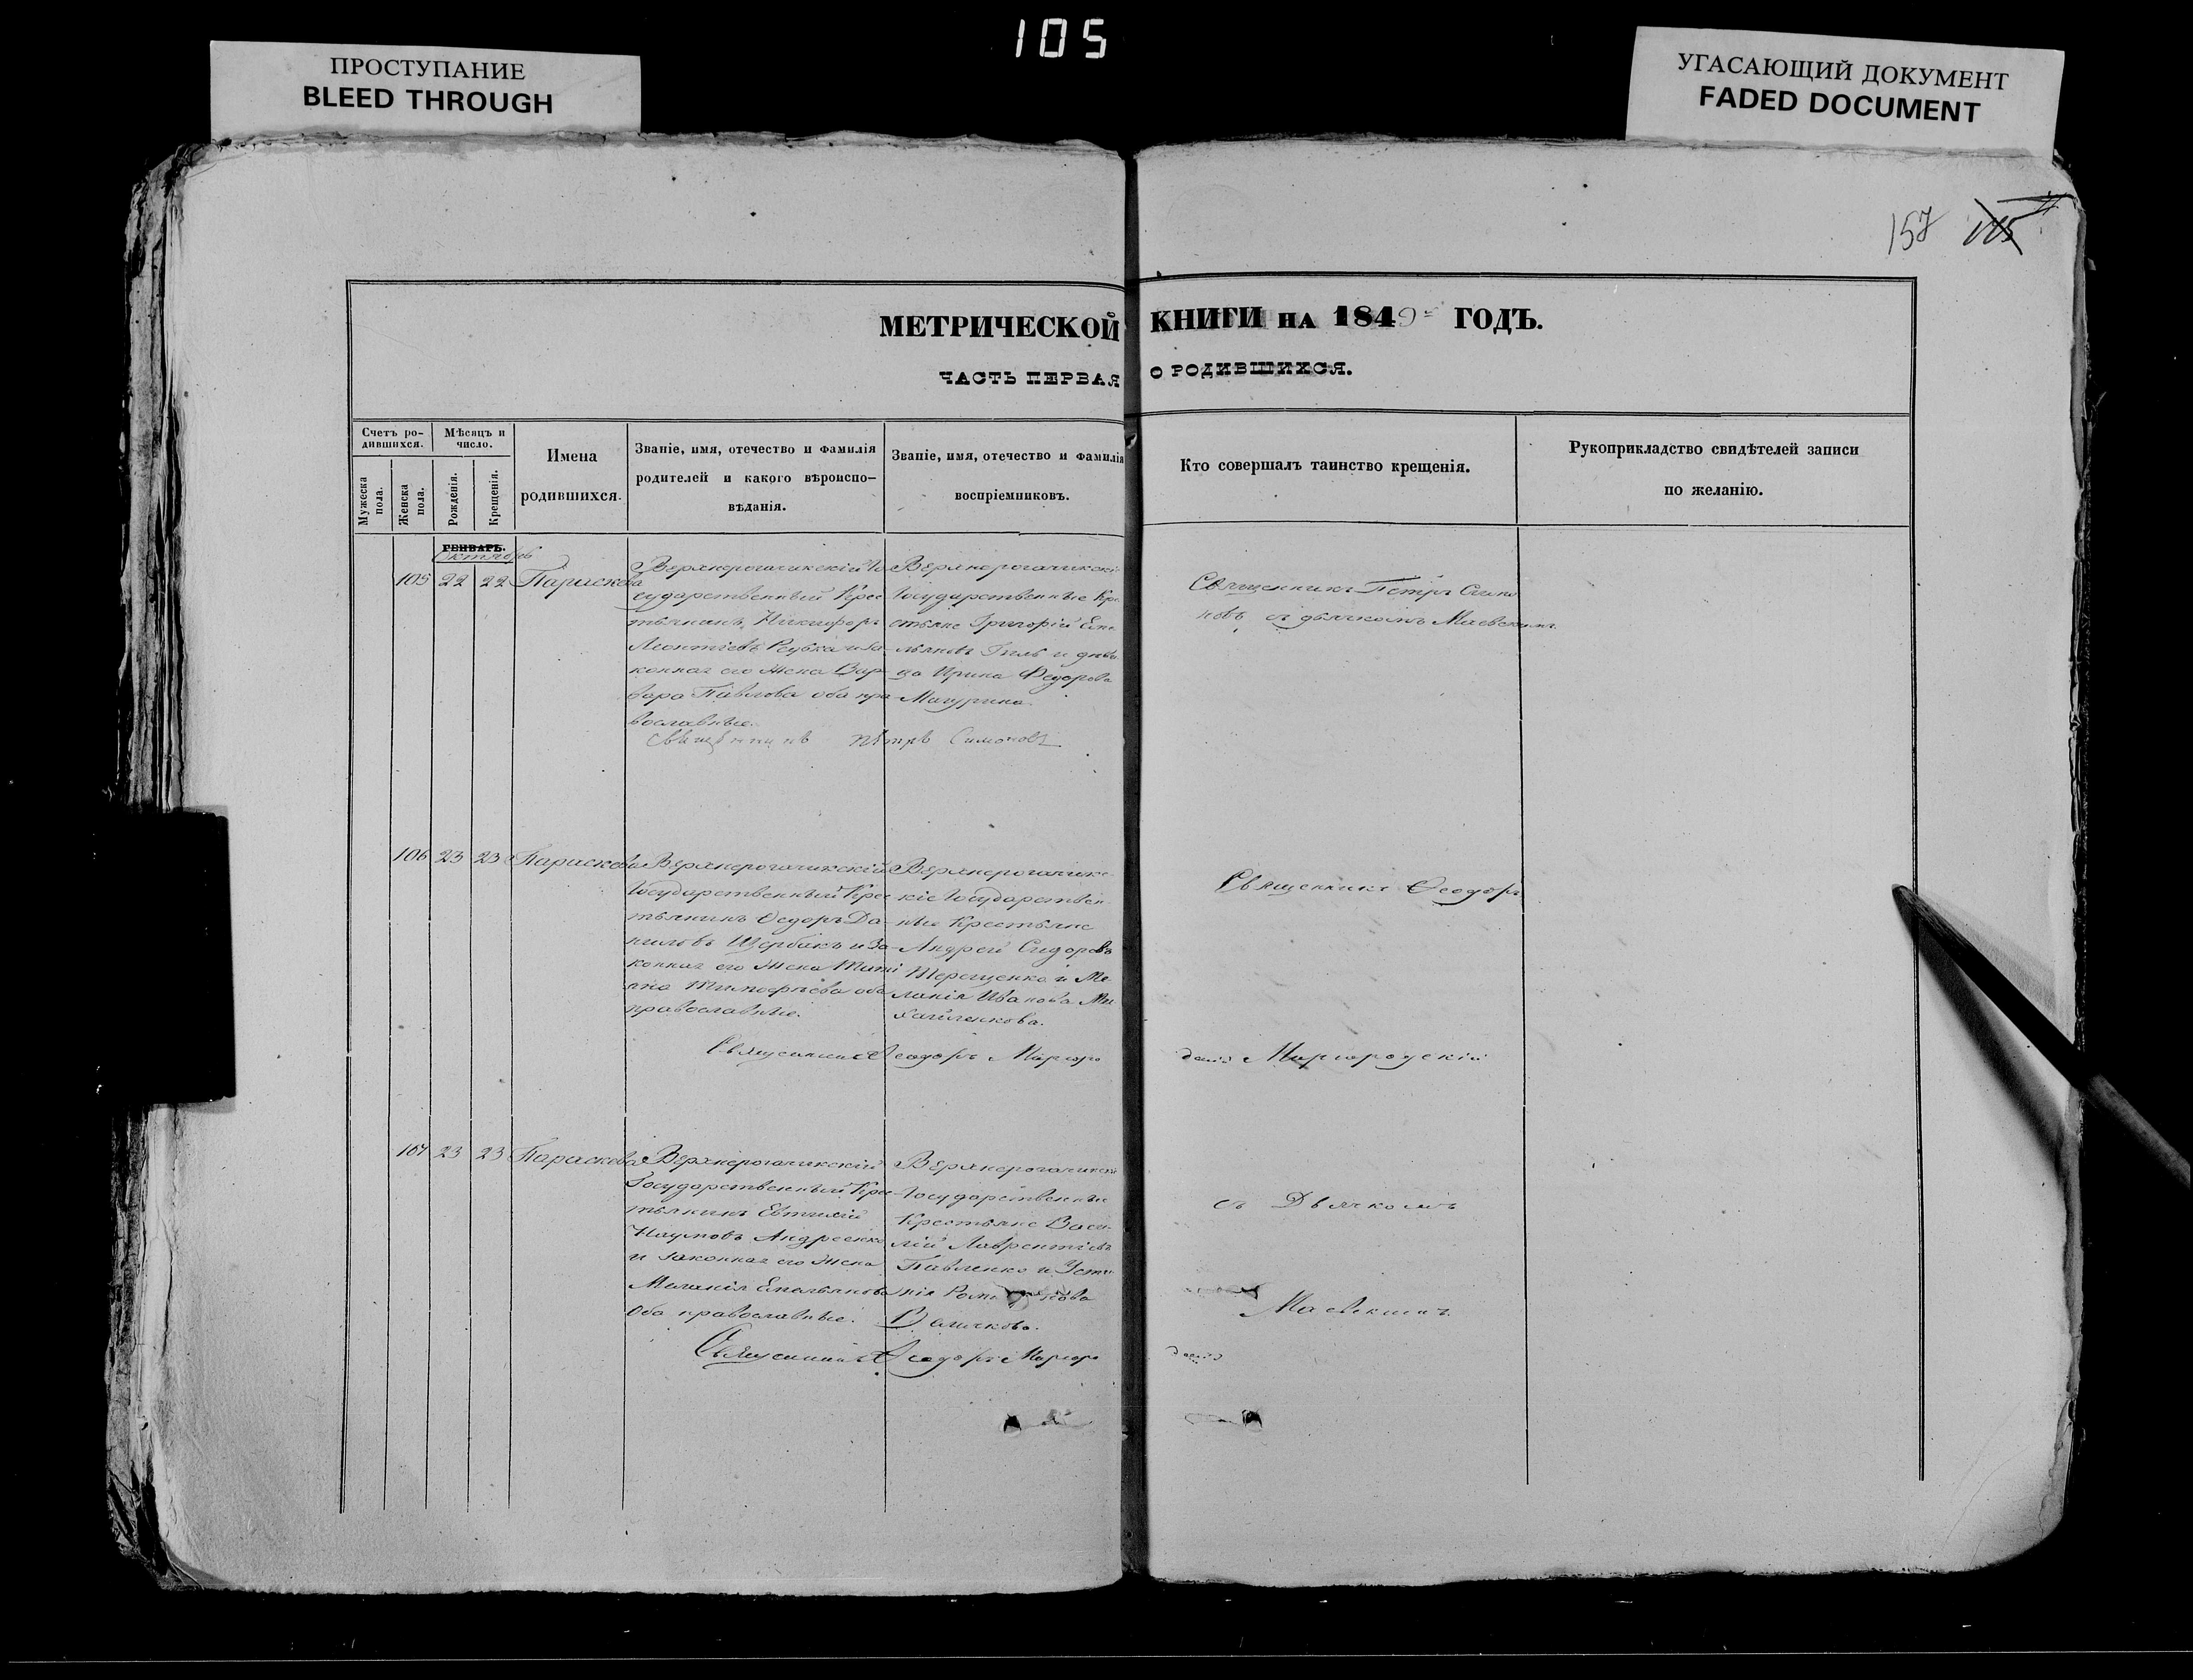 105
ПРОСТУПАНИЕ
BLEED THROUGH
УГАСАЮЩИЙ ДОКУМЕНТ
FADED DOCUMENT
157 115
МЕТРИЧЕСКОЙ КНИГИ НА 1849 ГОДЪ.
ЧАСТЬ ПЕРВАЯ О РОДИВШИХСЯ.
Счетъ ро-
дившихся.
Мужеска пола.
Женска пола.
Мѣсяцъ и
число.
Рожденія.
Крещенія.
Имена
родившихся.
Званіе, имя, отечество и фамилія
родителей и какого вѣроиспо-
вѣданія.
Званіе, имя, отечество и фамилія
воспріемниковъ.
Кто совершалъ таинство крещенія.
Рукоприкладство свидѣтелей записи
по желанію.
ГЕНВАРЬ.
Октябрь
105 22 22 Параскева
Верхнерогачикскій Го
сударственный Крес
тьянинъ Никифоръ
Леонтіевъ Рубка и за
конная его Жена Вар
вара Павлова оба пра
вославные.
Верхнерогачикскі
Государственные Кре
стьяне Григорій Еме
льяновъ и дѣви
ца Ирина Федорова
Мазурина
Священникъ Петръ Симо
новъ съ дьячкомъ Маевскимъ
Священникъ Петръ Симоновъ
106 23 23 Параскева
Верхнерогачикскій
Государственный Крес
тьянинъ Ѳедоръ Да
ниловъ Щербакъ и За
конная его Жена Тати
яна Тимофѣева оба
православные.
Верхнерогачикс
кіе Государствен
ные Крестьяне
Андрей Сидоровъ
Терещенко и Ме
ланія Иванова Ми
хайленкова.
Священникъ Ѳеодоръ
Священникъ Ѳеодоръ Миргоро
данъ Миргородскій
107 23 23 Параскева
Верхнерогачикскій
Государственный Крес
тьянинъ Евтихій
Наумовъ Андреенко
и законная его Жена
Меланія Емельянова
оба православные.
Верхнерогачикскі
Государственные
Крестьяне Васи
лій Лаврентіевъ
Павленко и Усти
нія
съ Дьячкомъ
Маевскимъ
Священникъ Ѳеодоръ Миргоро